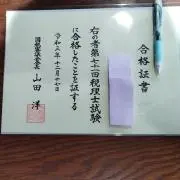 合格証書
右の者第七十一回税理士試験
に合格したことを証する
令和三年十二月十七日
国税審議会会長
山田洋